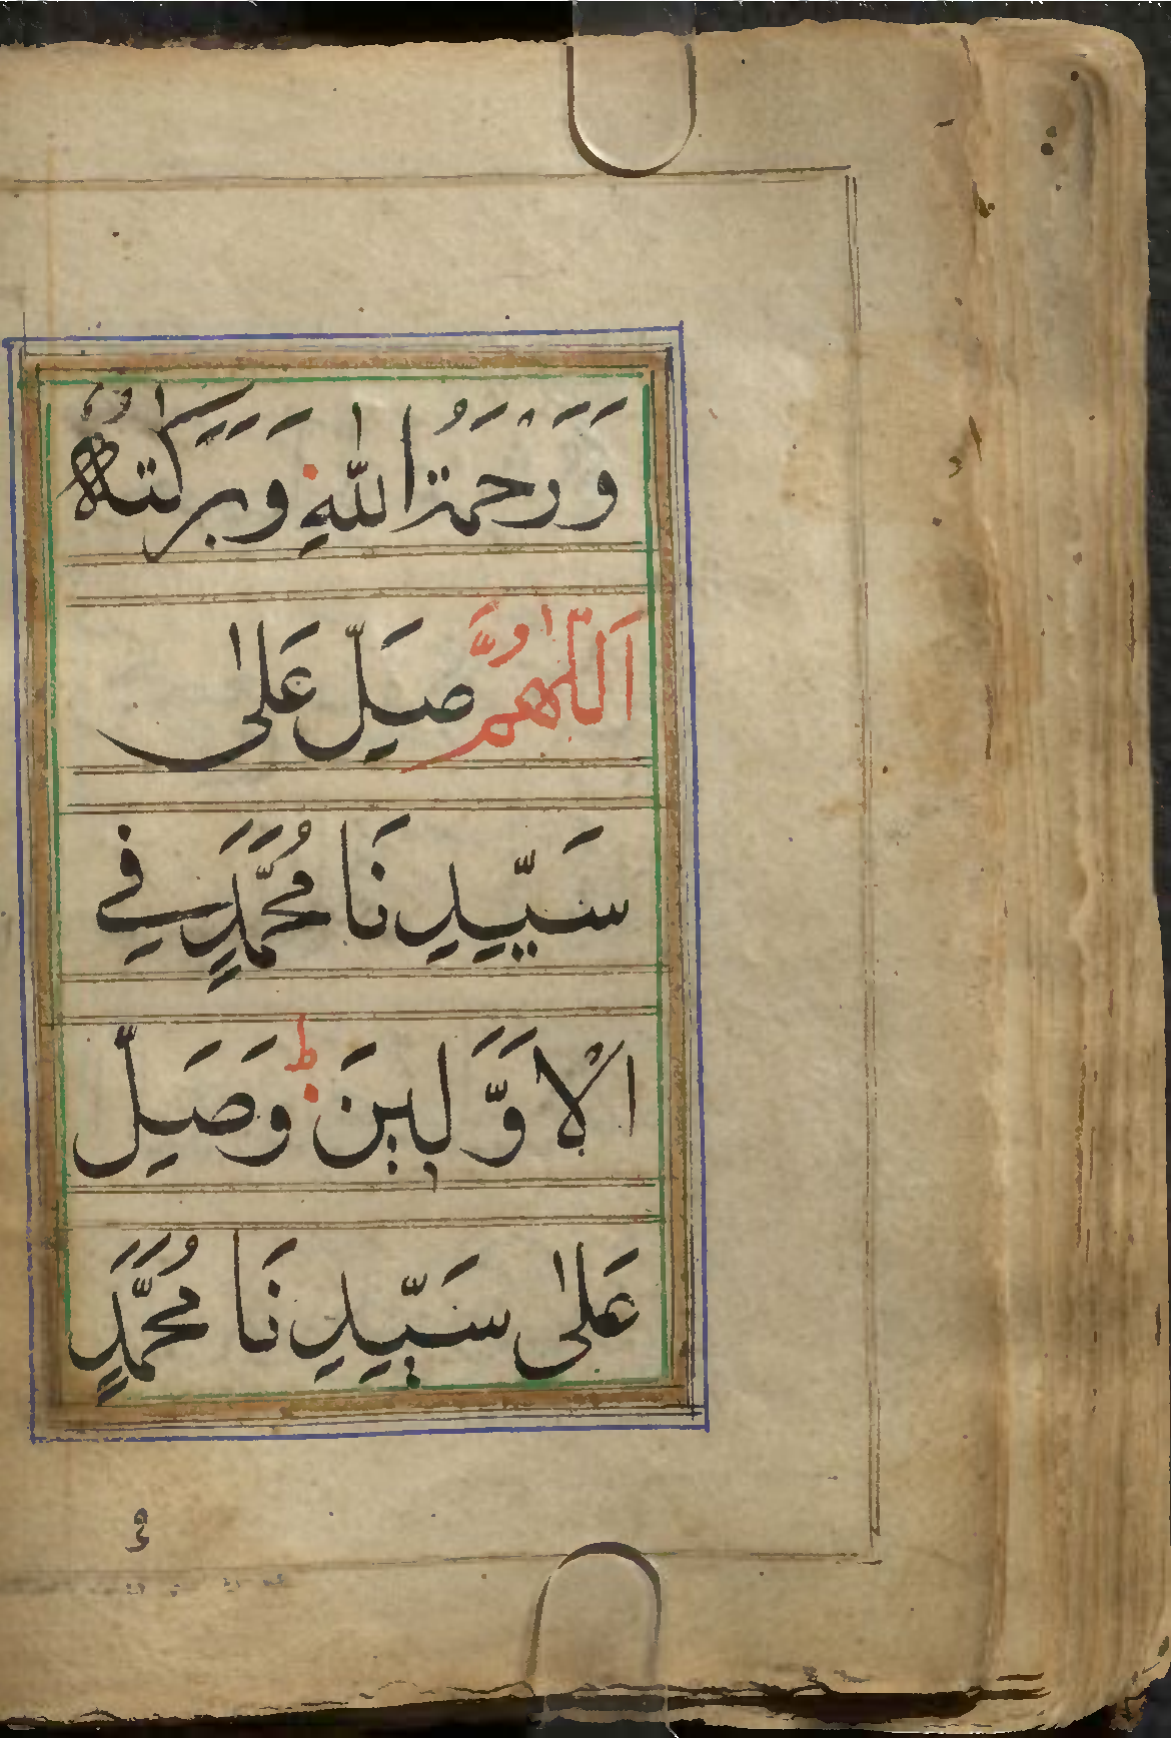 وَرَحْمَةُ اللّٰهِ وَبَرَكٰتُهُ
اَللّٰهُمَّ صَلِّ عَلٰى
سَيِّدِنَا مُحَمَّدٍ فِي
الْاَوَّلِينَ ط وَصَلِّ
عَلٰى سَيِّدِنَا مُحَمَّدٍ